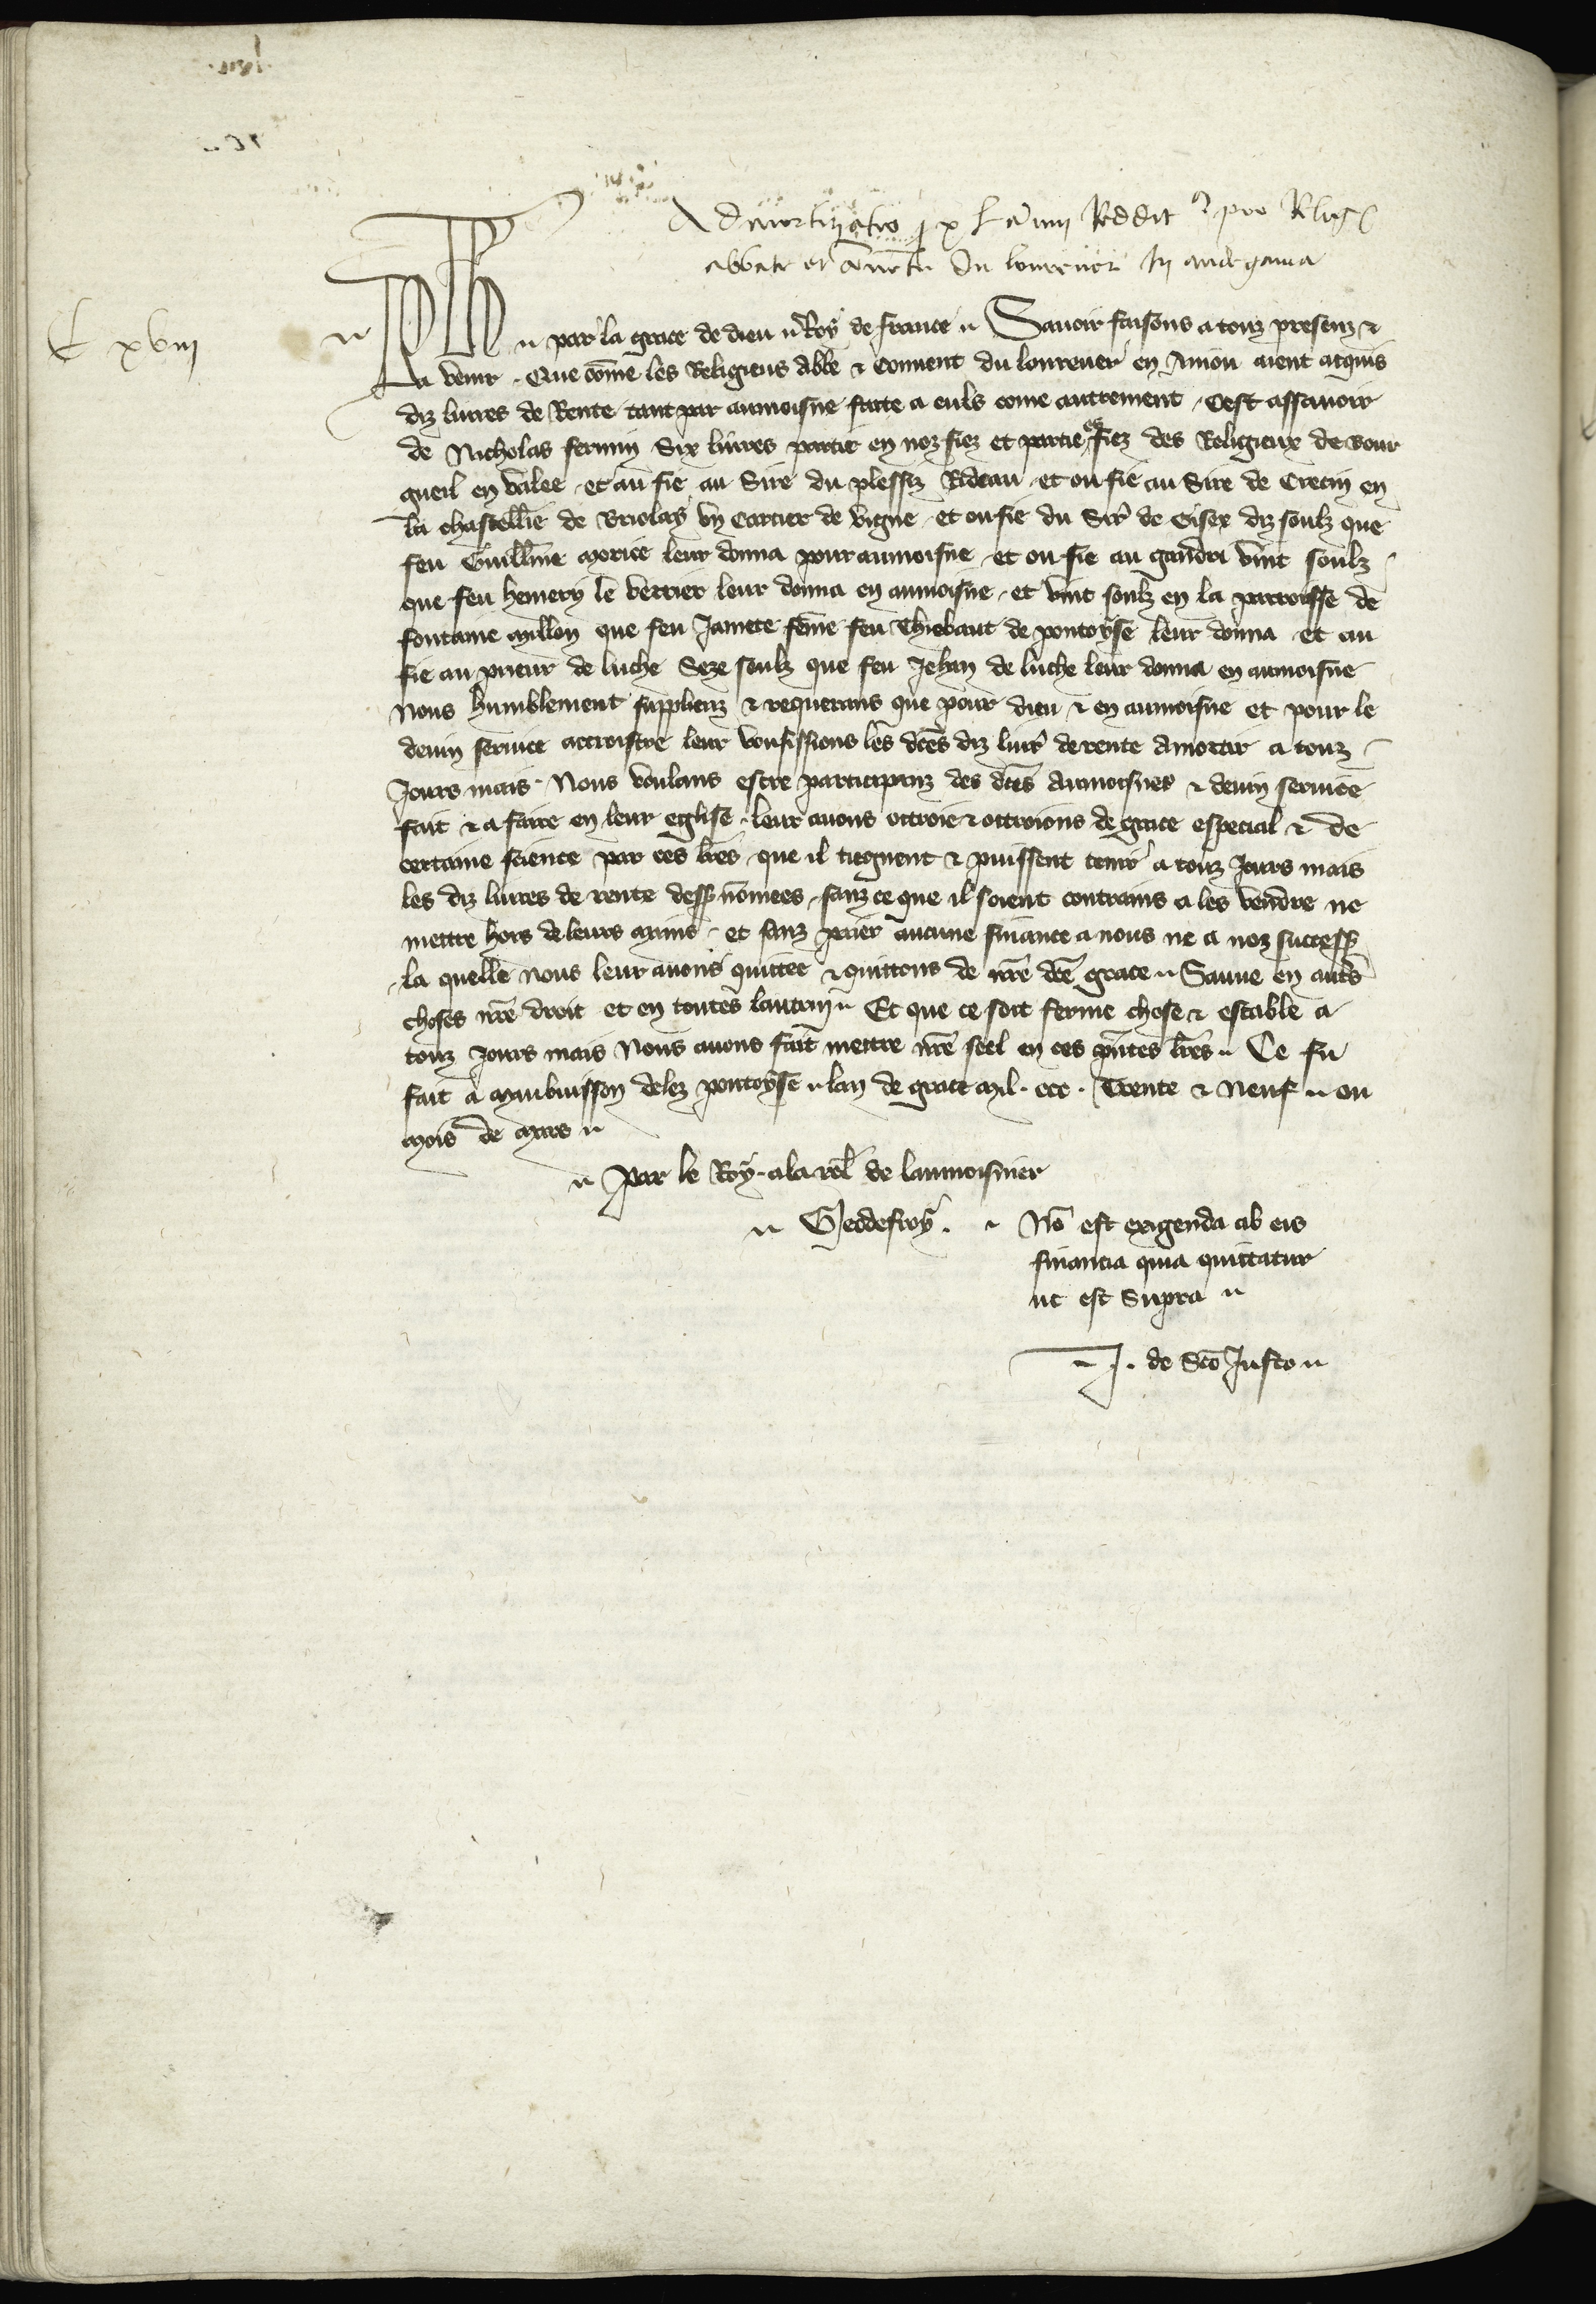 Admortizatio x l annui Reddit pro Relig
abbate et conventu du louvener In andegavia
C xviii
Ph par la grace de dieu Roy de france Savoir faisons a touz presenz &
a venir . Que come les Religieus Abbe & Convent du louvener en Aniou aient acquis
diz livres de Rente tant par aumosne faite a euls come autrement . Cest assavoir
de Nicholas fermin Six livres partie en noz fiez et partie es fiez des Religieux de Bour
gueil en valee et au fie au Sire du plessiz Rideau et ou fie au Sire de Crecin en
la chastellie de Briolay un Cartier de vigne et ou fie du Sire de Gisex diz soulz que
feu Guillme Morice leur donna pour aumoisne et ou fie au gandra vint soulz
que feu hemery le verrier leur donna en aumoisne et vint soulz en la parroisse de
fontaine millon que feu Jamete feme feu Thiebaut de pontoyse leur donna et au
fie au prieur de luche Seze soulz que feu Jehan de luche leur donna en aumoisne
Nous humblement supplienz & requerans que pour dieu & en aumoisne et pour le
devin service accroistre leur vousissions les dces diz livr de rente Amortir a touz
Jours mais . Nous voulans estre participanz des dces Aumoisnes & devin service
fait & a faire en leur eglise leur avons octroie & octroions de grace especial & de
certaine science par ces lres que il tiegnent & puissent tenir a touz Jours mais
les diz livres de rente dess nomees sanz ce que il soient contrains a les vendre ne
mettre hors de leurs mains et sanz paier aucune finance a nous ne a noz success
la quelle nous leur avons quittee & quittons de nre dce grace Sauve en autres
choses nre droit et en toutes lautruy Et que ce soit ferme chose & estable a
touz Jours mais Nous avons fait mettre nre seel en ces pntes lres Ce fu
fait a Maubuisson delez pontoyse lan de grace Mil . ccc . Trente & Neuf ou
Mois de Mars
par le Roy a la rel de laumoisnier
Geddefroy . No est exigenda ab eis
financia quia quittatur
ut est Supra
J . de Sco Justo